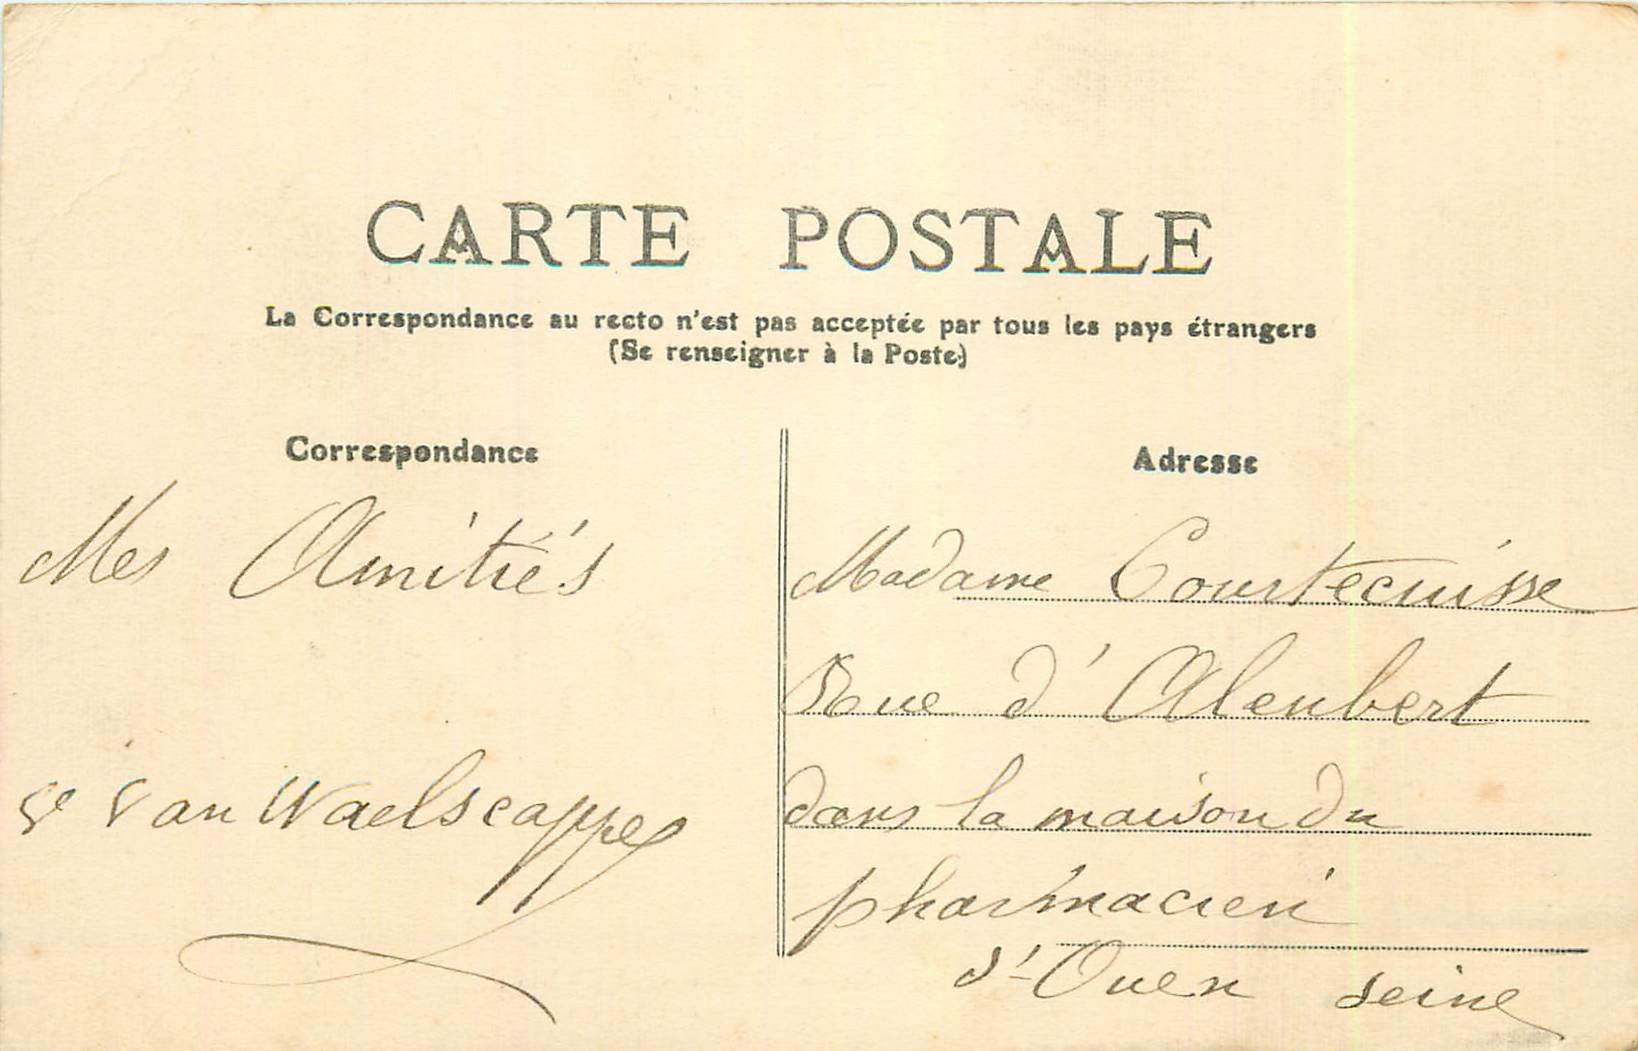 CARTE POSTALE
La Correspondance au recto n'est pas acceptée par tous les pays étrangers
(Se renseigner à la Poste)
Correspondance
Mes Amitiés
Van Waelscappel
Adresse
Madame Courtecuisse
Rue d'Alembert
dans la maison du
pharmacien
St-Ouen seine